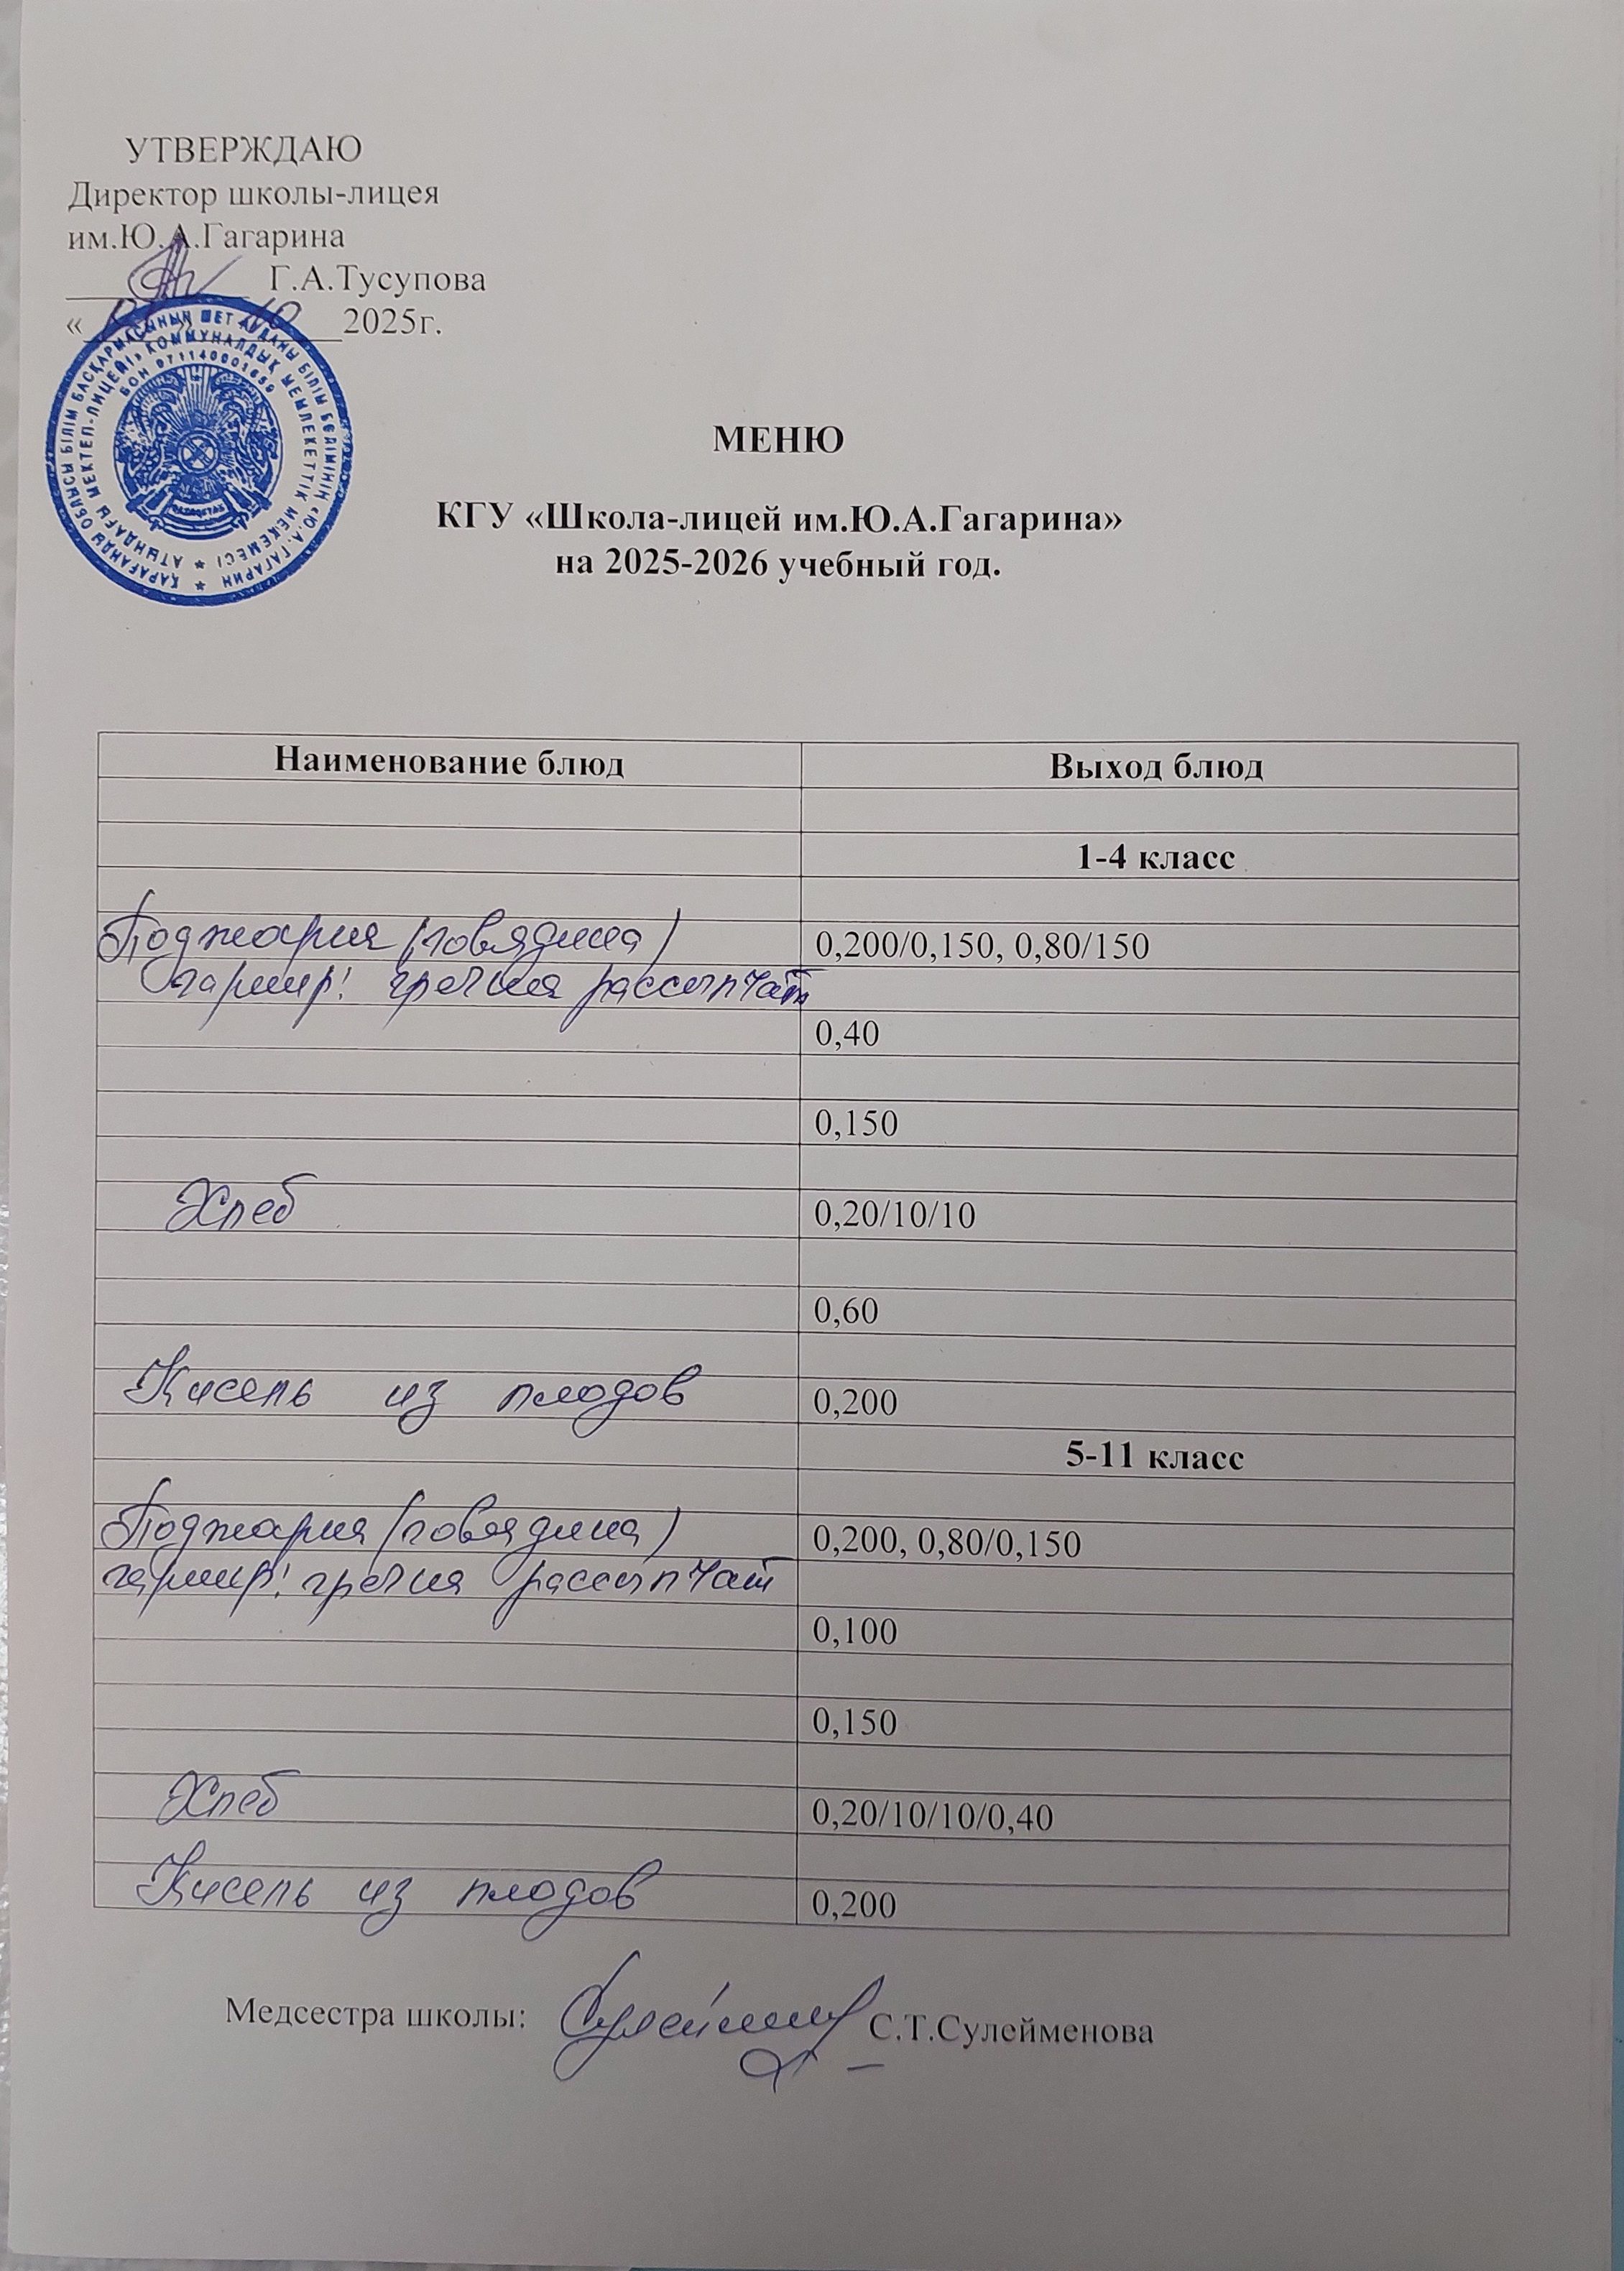 УТВЕРЖДАЮ
Директор школы-лицея
им.Ю.А.Гагарина
Г.А.Тусупова
« » 10 2025г.
ҚАРАҒАНДЫ ОБЛЫСЫ БІЛІМ БАСҚАРМАСЫНЫҢ ШЕТ АУДАНЫ БІЛІМ БӨЛІМІНІҢ «Ю.А.ГАГАРИН
АТЫНДАҒЫ МЕКТЕП-ЛИЦЕЙІ» КОММУНАЛДЫҚ МЕМЛЕКЕТТІК МЕКЕМЕСІ
БСН 971140001659
МЕНЮ
КГУ «Школа-лицей им.Ю.А.Гагарина»
на 2025-2026 учебный год.
Наименование блюд Выход блюд
1-4 класс
Поджарка (говядина) 0,200/0,150, 0,80/150
гарнир: гречка рассыпчат
0,40
0,150
Хлеб 0,20/10/10
0,60
Кисель из плодов 0,200
5-11 класс
Поджарка (говядина) 0,200, 0,80/0,150
гарнир: гречка рассыпчат
0,100
0,150
Хлеб 0,20/10/10/0,40
Кисель из плодов 0,200
Медсестра школы: С.Т.Сулейменова